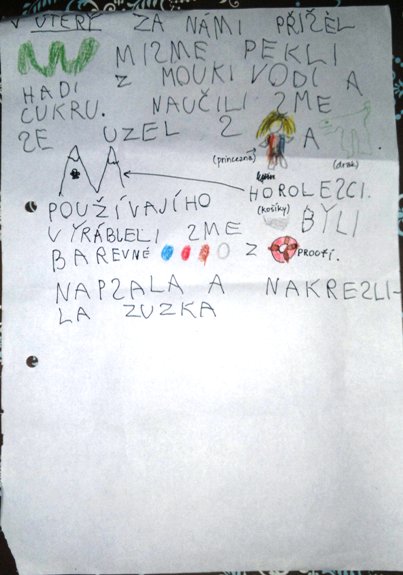 V ÚTERÝ ZA NÁMI PŘIŠEL
MI SME PEKLI
HADI Z MOUKI VODI A
CUKRU. NAUČILI SME
SE UZEL S A
(princezna) (drak)
HOROLESCI.
POUŽÍVAJÍHO (košíky) BYLI
VYRÁBLELI SME
BAREVNÉ Z PROUTÍ.
NAPSALA A NAKRESLI-
LA ZUZKA